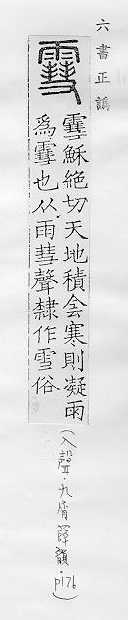 六書正譌
䨮
䨮穌絕切天地積会寒則凝雨
爲䨮也从雨彗聲隸作雪俗
(入聲·九屑薛韻·p176)